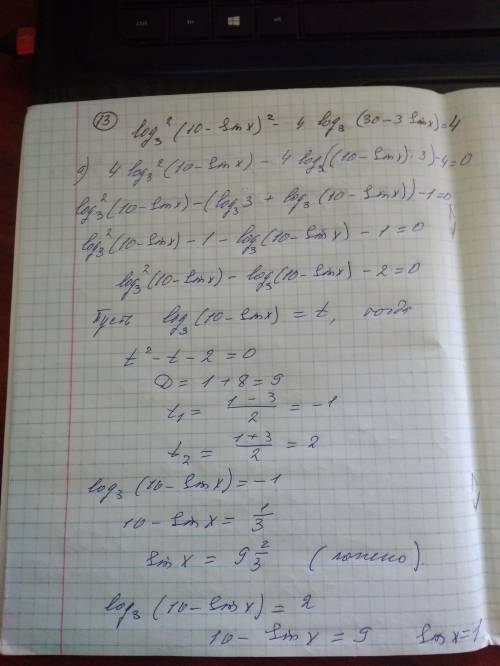 ctrl fn alt
13 log₃²(10-sinx)² - 4 log₃(30-3 sinx)=4
а) 4 log₃²(10-sinx) - 4 log₃((10-sinx)·3)-4=0
log₃²(10-sinx)-(log₃3 + log₃(10-sinx))-1=0
log₃²(10-sinx)-1-log₃(10-sinx)-1=0
log₃²(10-sinx)-log₃(10-sinx)-2=0
Пусть log₃(10-sinx)=t, тогда
t²-t-2=0
D=1+8=9
t₁=(1-3)/2=-1
t₂=(1+3)/2=2
log₃(10-sinx)=-1
10-sinx=1/3
sinx=9 2/3 (ложно).
log₃(10-sinx)=2
10-sinx=9 sinx=1